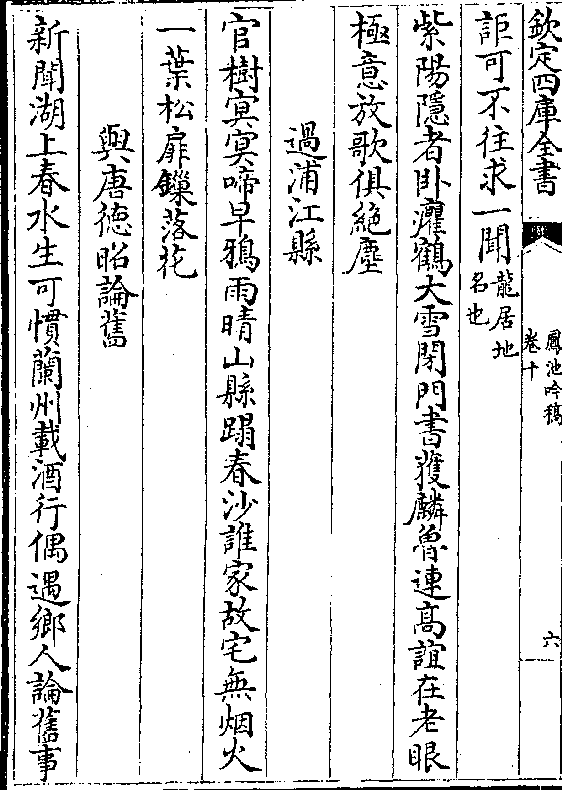 欽定四庫全書
鳳池吟稿
卷十
六
詎可不往求一聞龍居地名也
紫陽隱者卧癯鶴大雪閉門書獲麟魯連高誼在老眼
極意放歌俱絶塵
過浦江縣
官樹冥冥啼早鴉雨晴山縣蹋春沙誰家故宅無烟火
一葉松扉鏁落花
與唐德昭論舊
新聞湖上春水生可慣蘭州載酒行偶遇鄉人論舊事